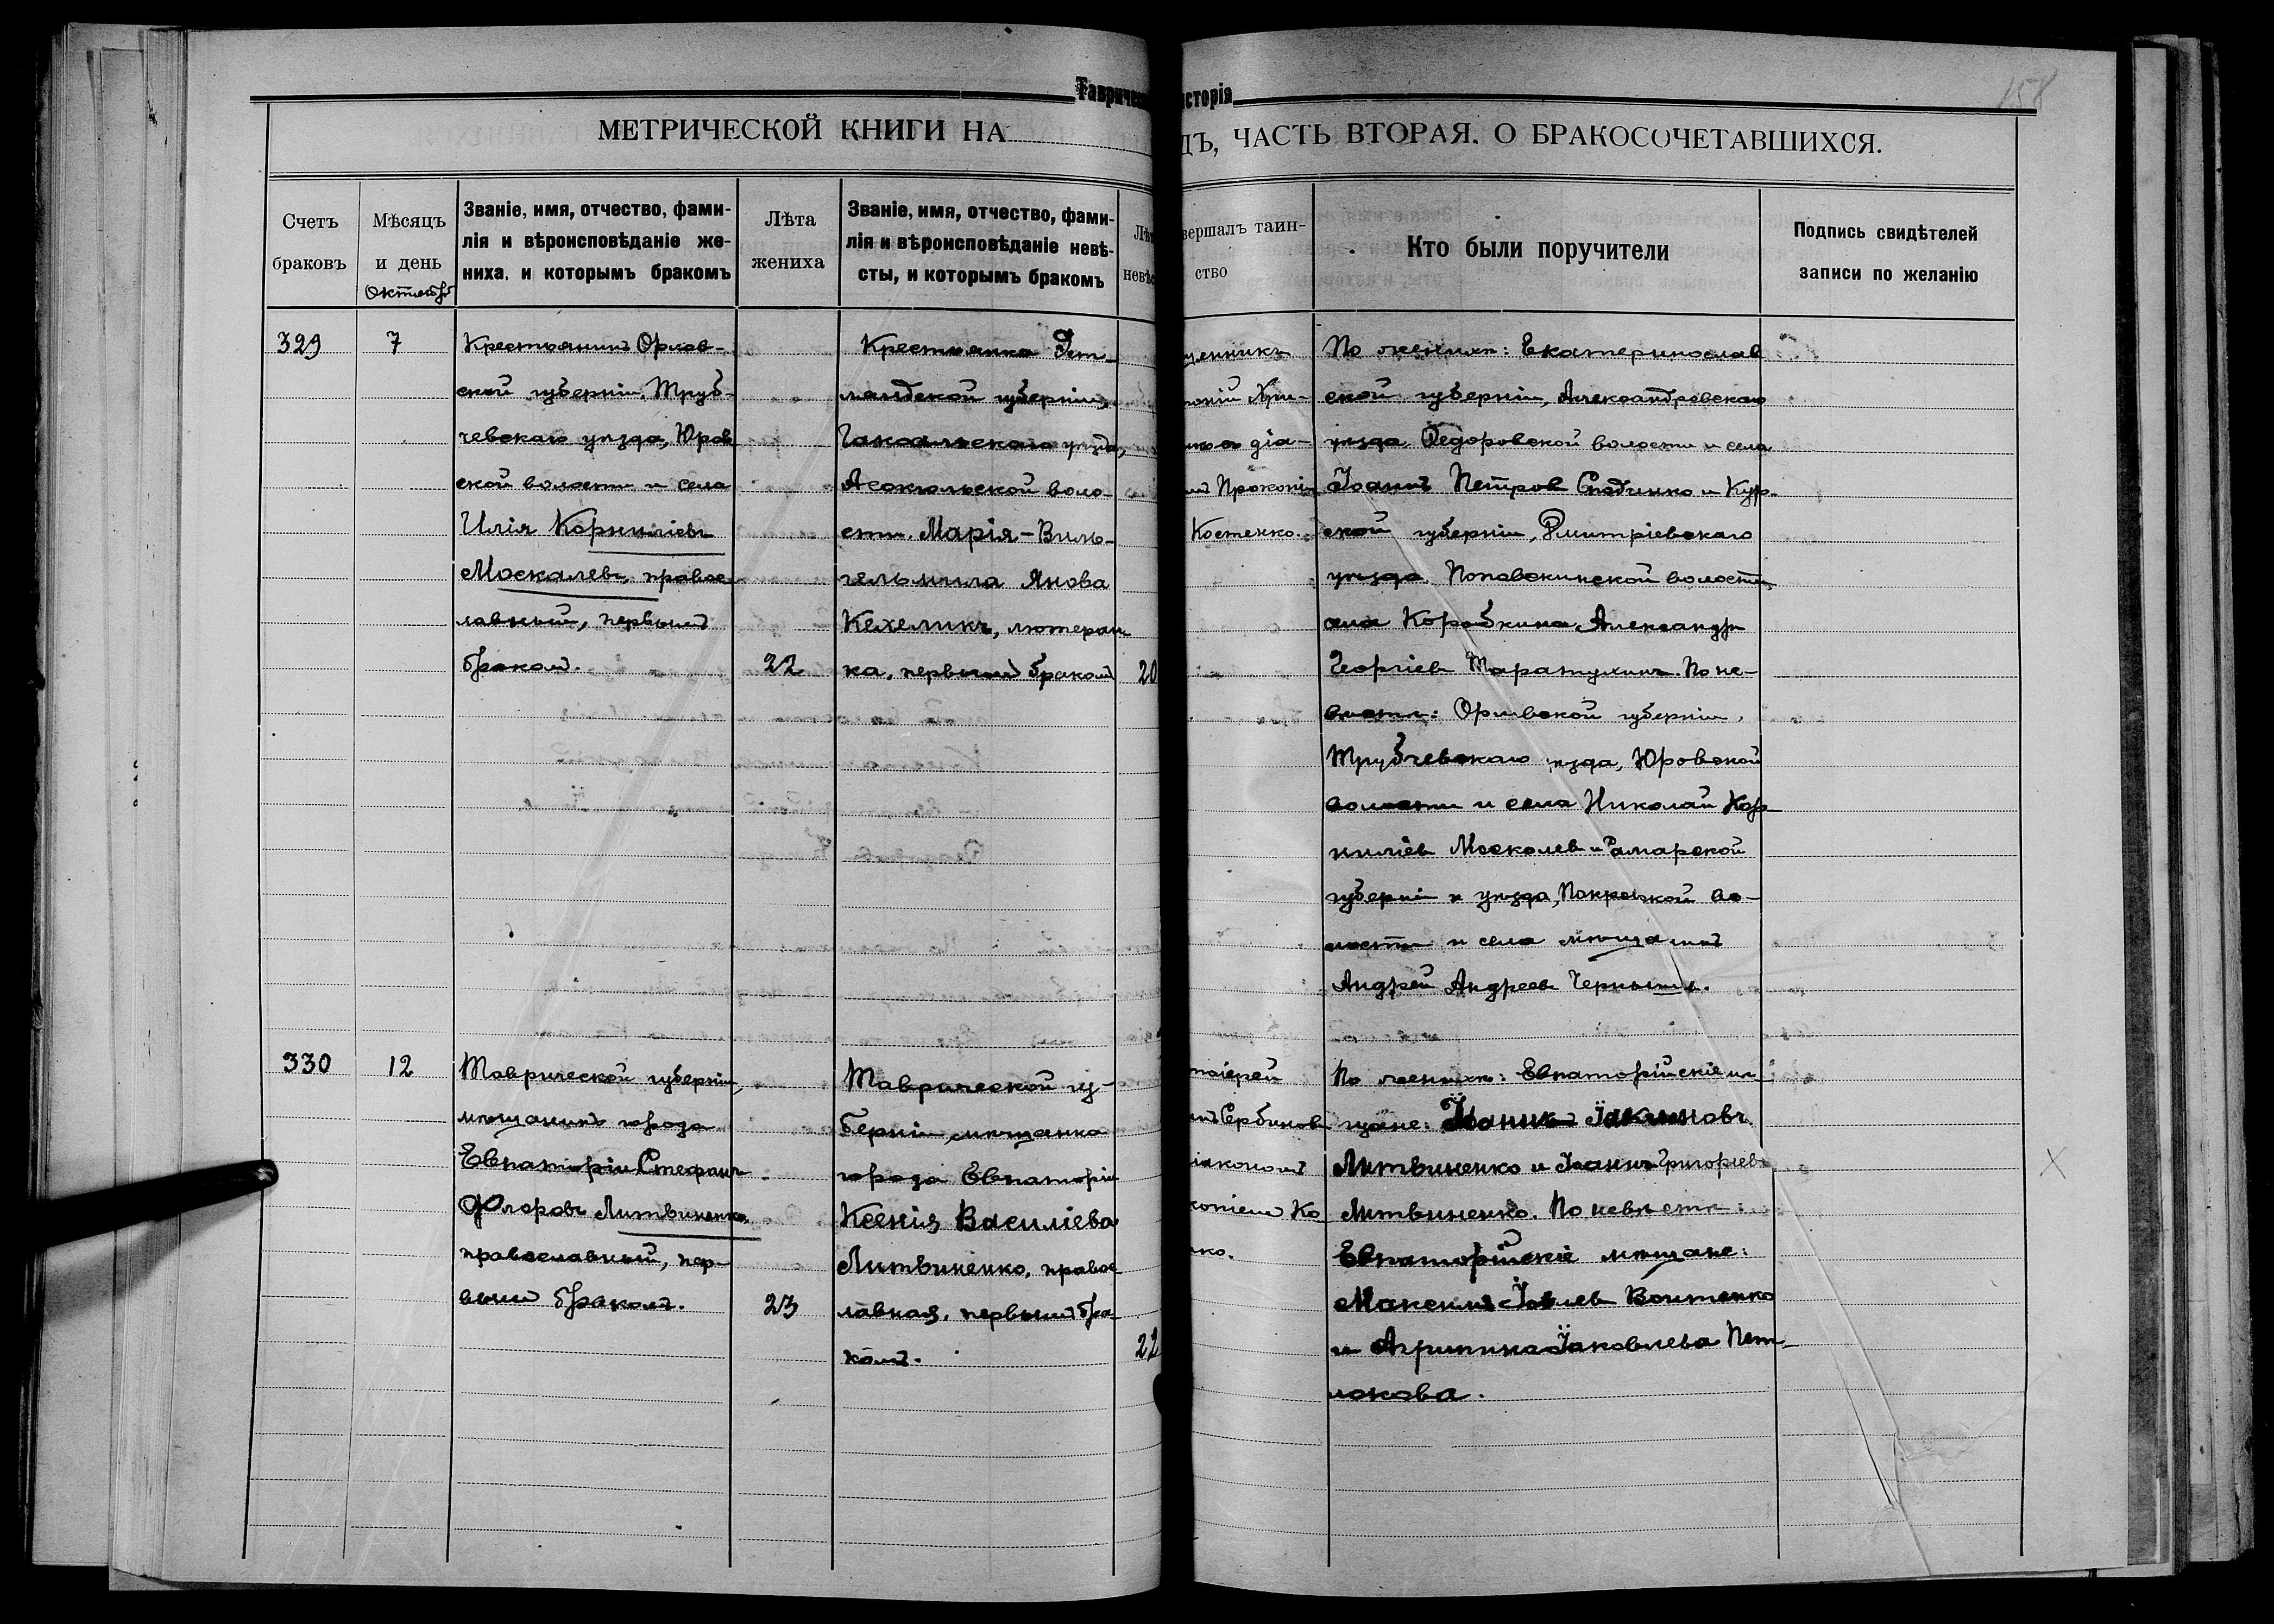 158
Тавриче
исторія
МЕТРИЧЕСКОЙ КНИГИ НА
ДЪ, ЧАСТЬ ВТОРАЯ, О БРАКОСОЧЕТАВШИХСЯ.
Счетъ
браковъ
Мѣсяцъ
и день
Октябрь
Званіе, имя, отчество, фами-
лія и вѣроисповѣданіе же-
ниха, и которымъ бракомъ
Лѣта
жениха
Званіе, имя, отчество, фами-
лія и вѣроисповѣданіе невѣ-
сты, и которымъ бракомъ
Лѣт
невѣс
вершалъ таин-
ство
Кто были поручители
Подпись свидѣтелей
записи по желанію
329
7
Крестьянинъ Орлов-
ской губерніи, Труб-
чевскаго уѣзда, Юров
ской волости и села
Илія Корниліевъ
Москалевъ, правос
лавный, первымъ
бракомъ.
22
Крестьянка Эст-
ляндской губерніи,
Гапсальскаго уѣзда,
воло-
сти. Марія-Виль-
гельмина Янова
Кехеликъ, лютеран
ка, первымъ бракомъ
20
щенникъ
оній Кри-
діа-
Прокопі
Костенко.
По женихѣ: Екатеринослав
ской губерніи, Александровскаго
уѣзда Федоровской волости и села
Іоаннъ Петров и Кур-
ской губерніи, Дмитріевскаго
уѣзда волости,
села Коробкина Александръ
Георгіев Таратухинъ. По не-
вѣстѣ: Орловской губерніи,
Трубчевскаго уѣзда, Юровской
волости и села Николай Кор
ниліев Москалев и Самарской
губерніи и уѣзда, Покровской во-
лости и села мѣщанинъ
Андрей Андреев Чернышъ.
330
12
Таврической губерніи,
мѣщанинъ города
Евпаторіи Стефанъ
Флоровъ Литвиненко,
православный, пер-
вымъ бракомъ.
23
Таврической гу-
берніи, мѣщанка
города Евпаторіи
Ксенія Василіева
Литвиненко, правос
лавная, первымъ бра-
комъ.
22
тоіерей
Сербинов
іакономъ
копіемъ Ко
нко.
По женихѣ: Евпаторійскіе мѣ-
щане: Іоаннъ Іакимовъ
Литвиненко и Іоаннъ Григоріевъ
Литвиненко. По невѣстѣ:
Евпаторійскіе мѣщане:
Максимъ Войтенко
и Агрипина Іаковлева Пет
локова.